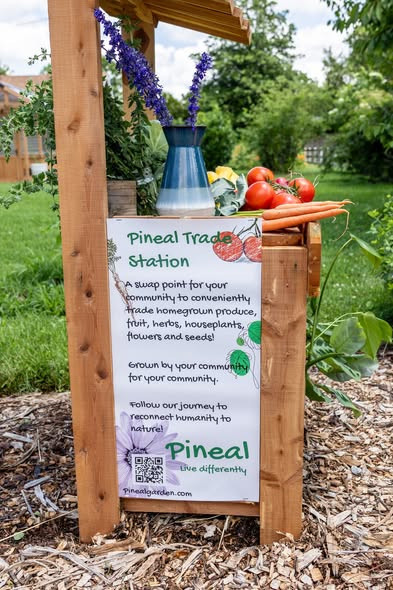 Pineal Trade
Station
A swap point for your
community to conveniently
trade homegrown produce,
fruit, herbs, houseplants,
flowers and seeds!
Grown by your community
for your community.
Follow our journey to
reconnect humanity to
nature!
Pineal
Live differently
Pinealgarden.com